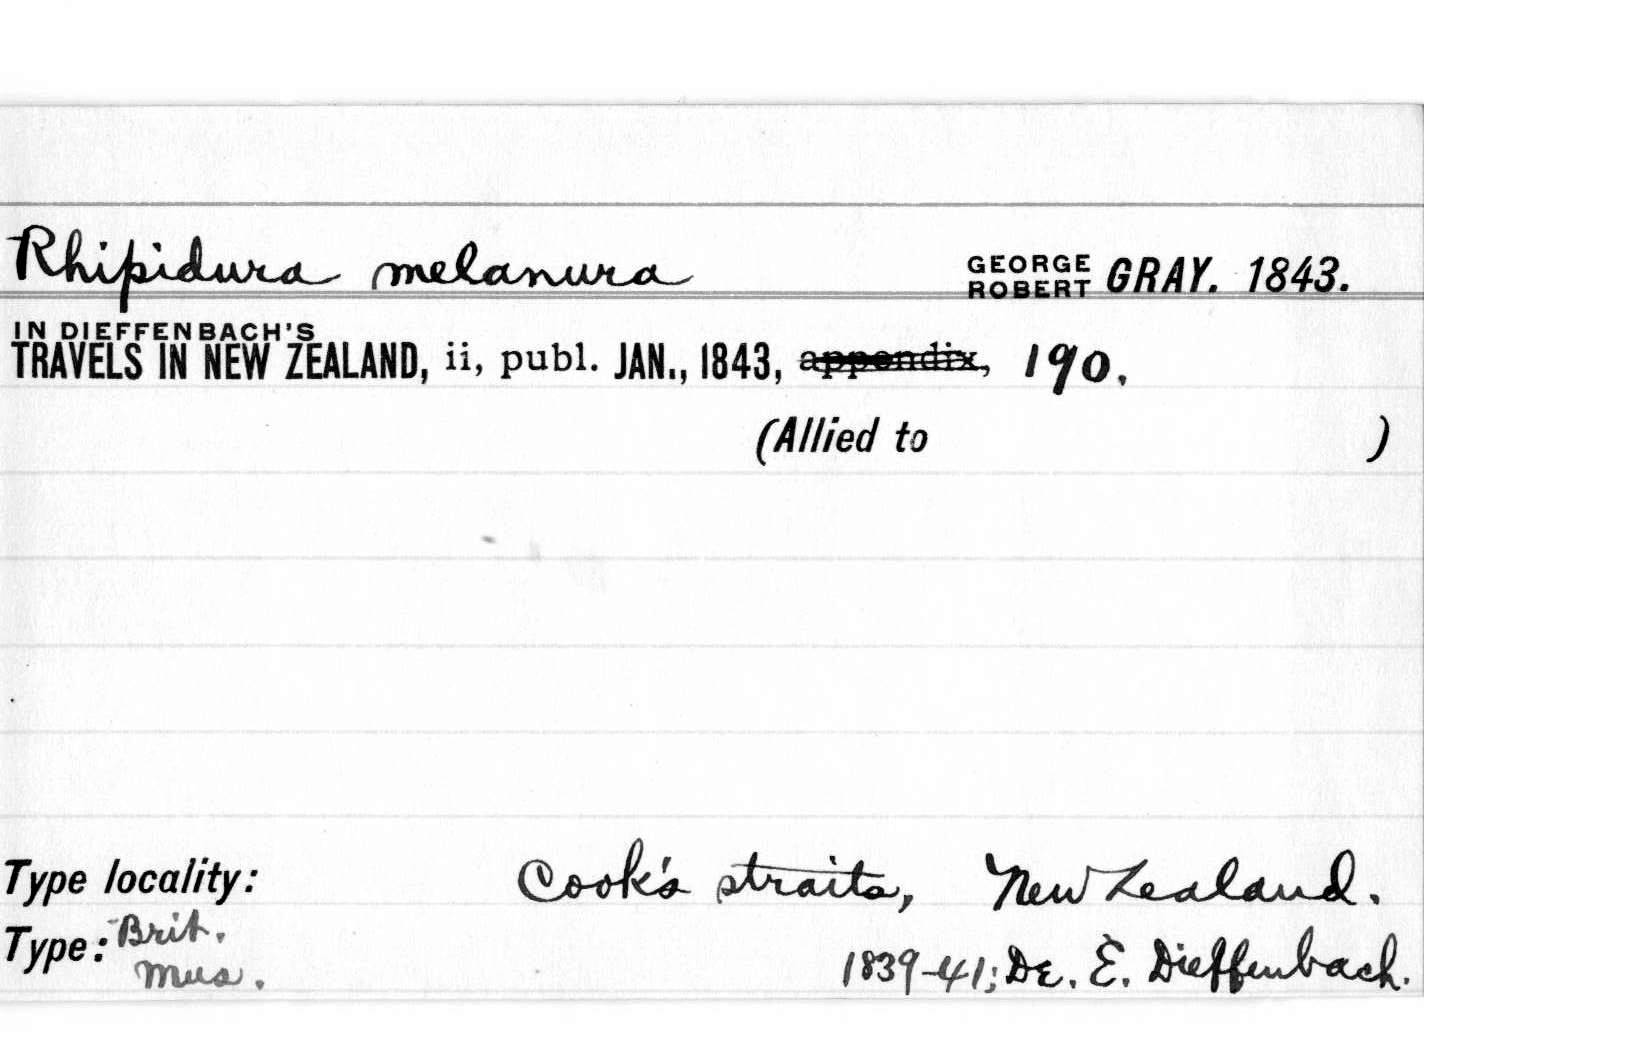 Rhipidura melanura GEORGE ROBERT GRAY. 1843.
IN DIEFFENBACH'S
TRAVELS IN NEW ZEALAND, ii, publ. JAN., 1843, appendix, 190.
(Allied to )
Type locality: Cook's straits, New Zealand.
Type: Brit. Mus. 1839-41; Dr. E. Dieffenbach.